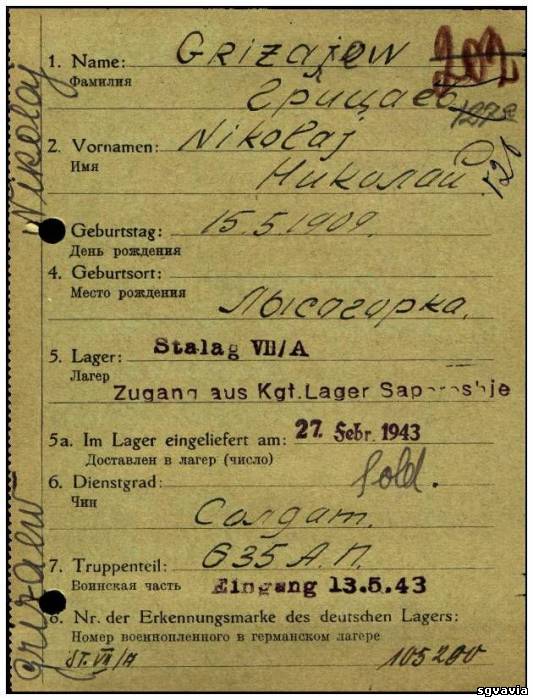 1. Name: Grizajew 202
Фамилия
Грицаев
2. Vornamen: Nikolaj
Имя
Николай
Geburtstag: 15.5.1909.
День рождения
4. Geburtsort:
Место рождения
Лысагорка.
5. Lager: Stalag VII/A
Лагер
Zugang aus Kgf. Lager Saporoshje
5a. Im Lager eingeliefert am: 27. Febr. 1943
Доставлен в лагер (число)
6. Dienstgrad: Sold.
Чин
Салдат.
7. Truppenteil: 635 А.П.
Воинская часть Eingang 13.5.43
8. Nr. der Erkennungsmarke des deutschen Lagers:
Номер военнопленного в германском лагере
ST. VII/A 105200
Nikolaj
Grizaew
sgvavia